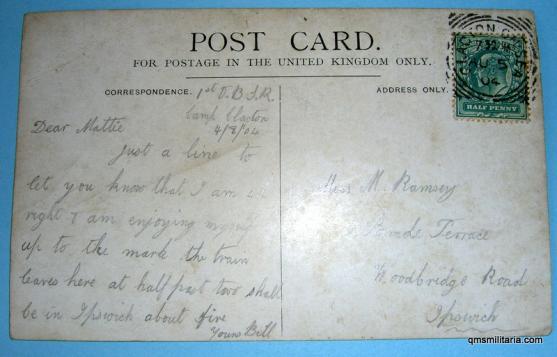 POST CARD.
FOR POSTAGE IN THE UNITED KINGDOM ONLY.
CORRESPONDENCE.
ADDRESS ONLY.
HALF PENNY
1st V.B.S.R.
Camp Clacton
4/8/04
Dear Mattie
Just a line to
let you know that I am
right & am enjoying myself
up to the mark the train
leaves here at half past two shall
be in Ipswich about five
Yours Bill
Miss M. Ramsey
Terrace
Woodbridge Road
Ipswich
qmsmilitaria.com